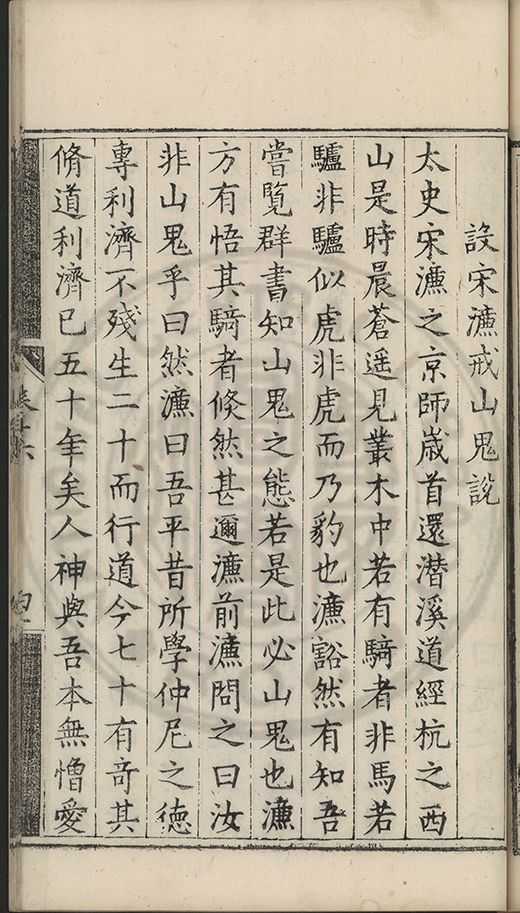 設宋濂戒山鬼說
太史宋濂之京師歲首還潛溪道經杭之西
山是時晨蒼遥見叢木中若有騎者非馬若
驢非驢似虎非虎而乃豹也濂豁然有知吾
嘗覽群書知山鬼之態若是此必山鬼也濂
方有悟其騎者倐然甚邇濂前濂問之曰汝
非山鬼乎曰然濂曰吾平昔所學仲尼之德
專利濟不殘生二十而行道今七十有奇其
脩道利濟已五十年矣人神與吾本無憎愛
卷十六
四